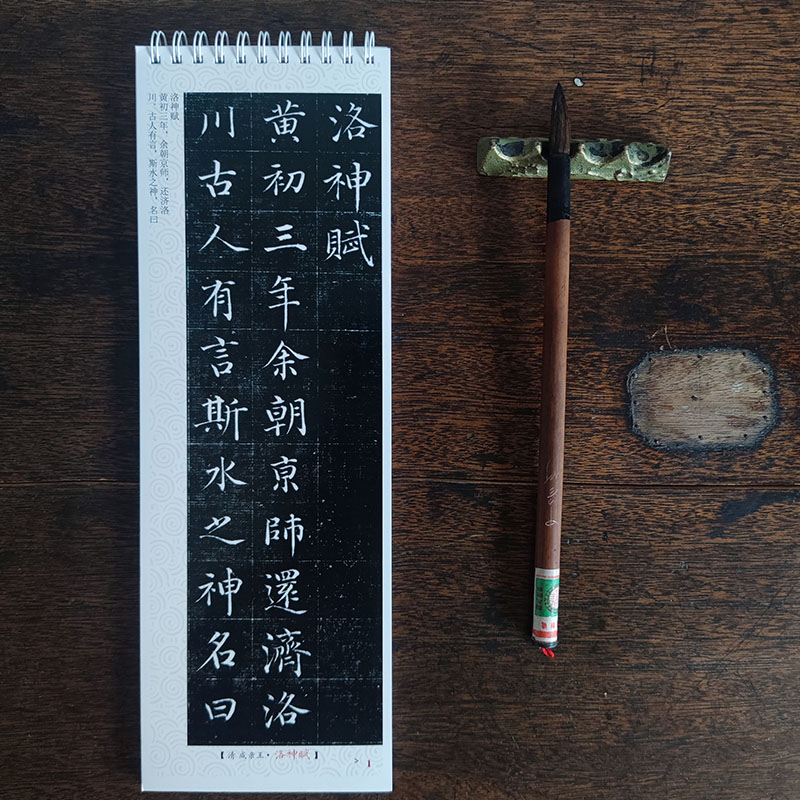 洛神賦
黄初三年余朝京師還濟洛
川古人有言斯水之神名曰
洛神赋
黄初三年，余朝京师，还济洛
川。古人有言，斯水之神，名曰
【清·成亲王·洛神赋】
1